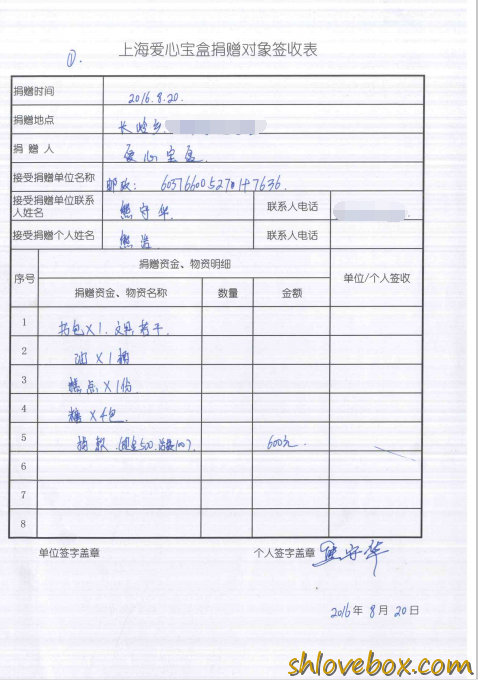 ①.
上海爱心宝盒捐赠对象签收表
捐赠时间 2016.8.20
捐赠地点 长岭乡
捐 赠 人 爱心宝盒.
接受捐赠单位名称 邮政:
接受捐赠单位联系人姓名 熊守华 联系人电话
接受捐赠个人姓名 熊浩 联系人电话
序号 捐赠资金、物资明细 单位/个人签收
捐赠资金、物资名称 数量 金额
1 书包X1. 文具若干.
2 油X1桶
3 糕点X1份
4 糖X4包.
5 捐款(现金500. 100). 600元.
6
7
8
单位签字盖章 个人签字盖章 熊守华
2016年 8月 20日
shlovebox.com